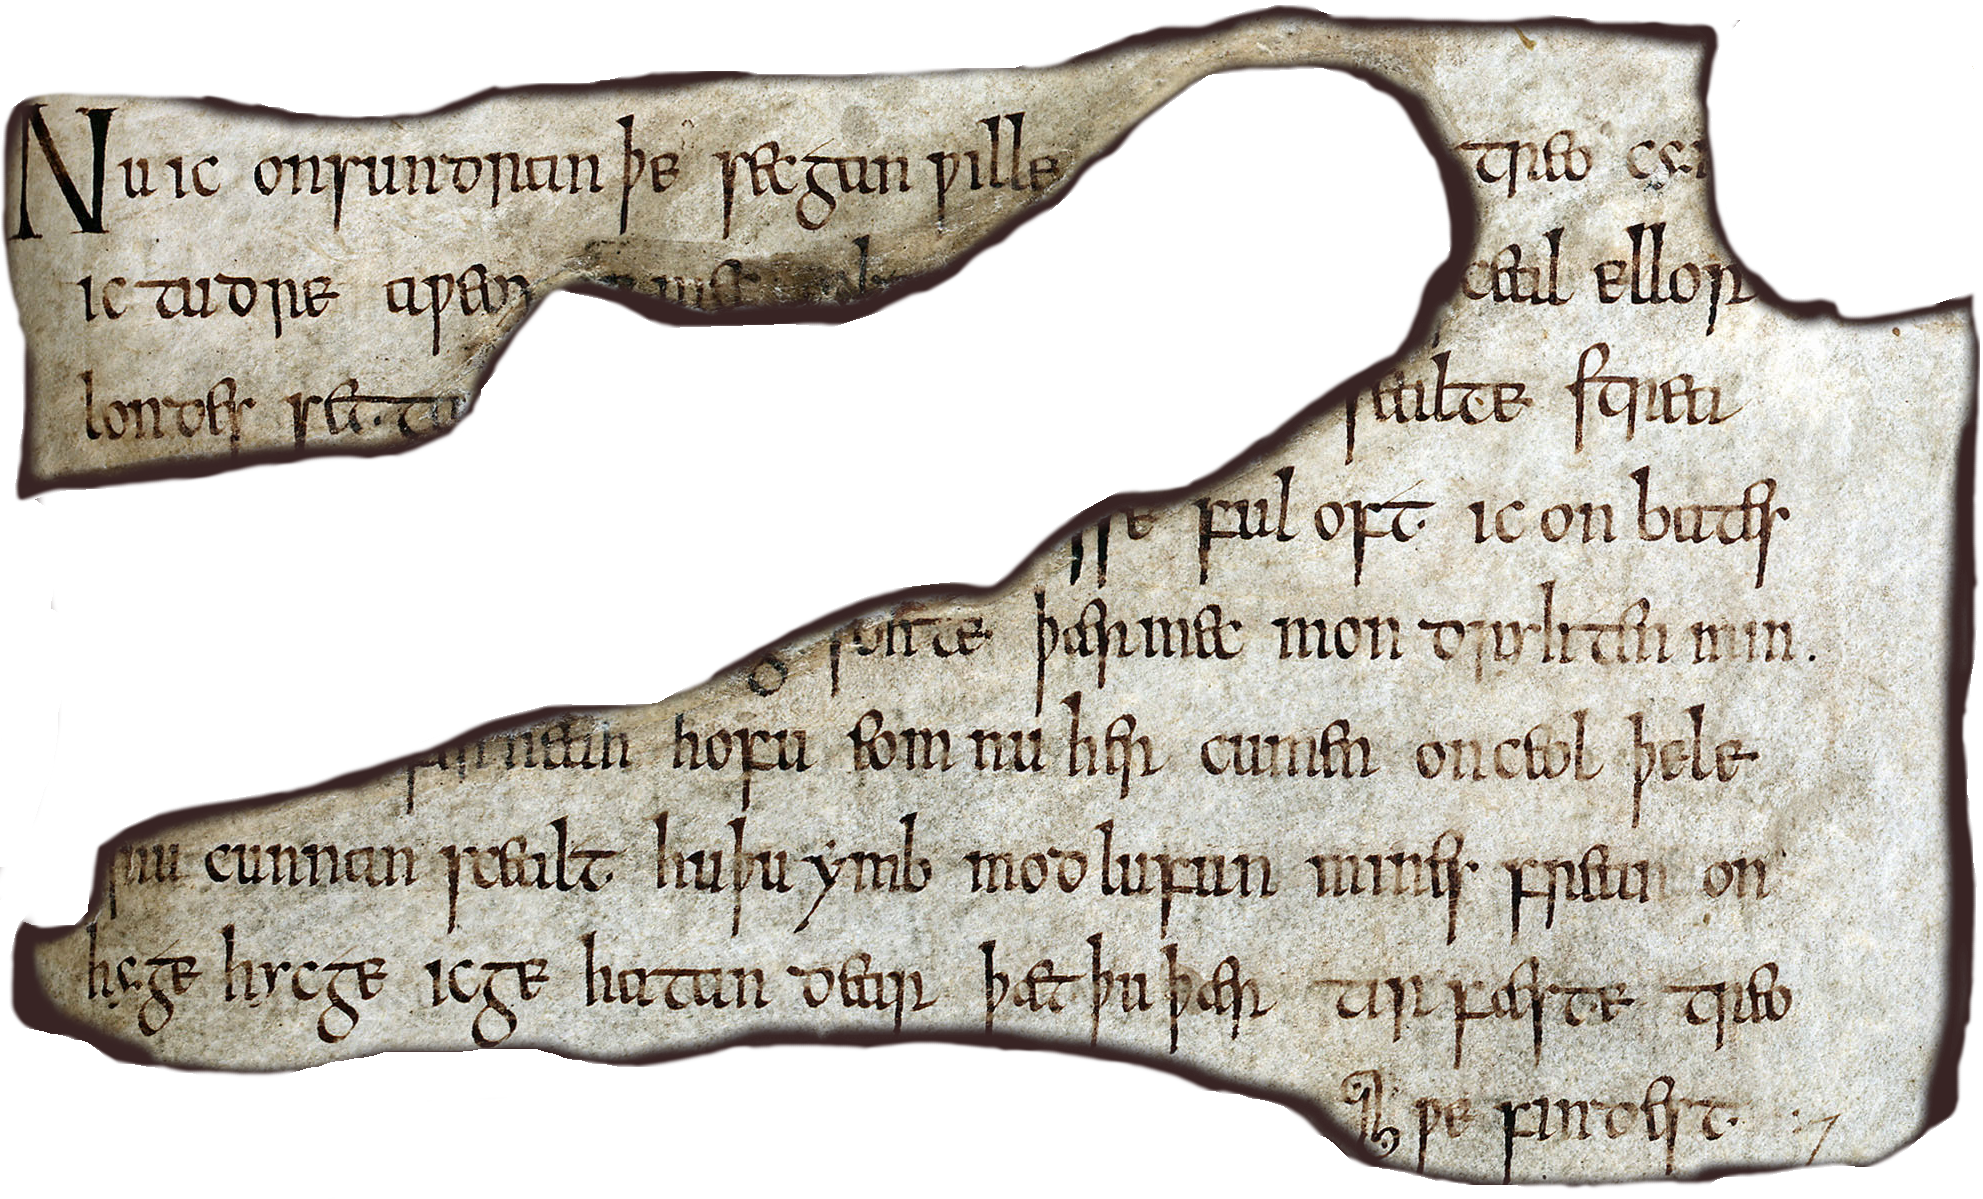 Nu ic onsundran þe secgan ƿille treo
ic tudre aƿeox mec ceal ellor
londes set ta sealte strea
sse ful oft ic on bates
sohte þær mec mon dryhten min.
hean hofu eom nu her cumen on ceol þele
nu cunnan scealt hu þu ẏmb mod lufun mines frean on
hẏge hycge ic ge hatan dear þæt þu þær tir fæste treo
ƿe findest :7